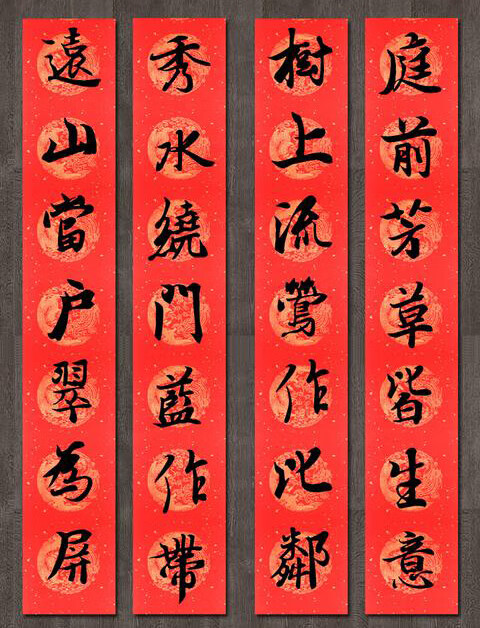 庭前芳草皆生意
樹上流鶯作比鄰
秀水繞門藍作帶
遠山當户翠為屏